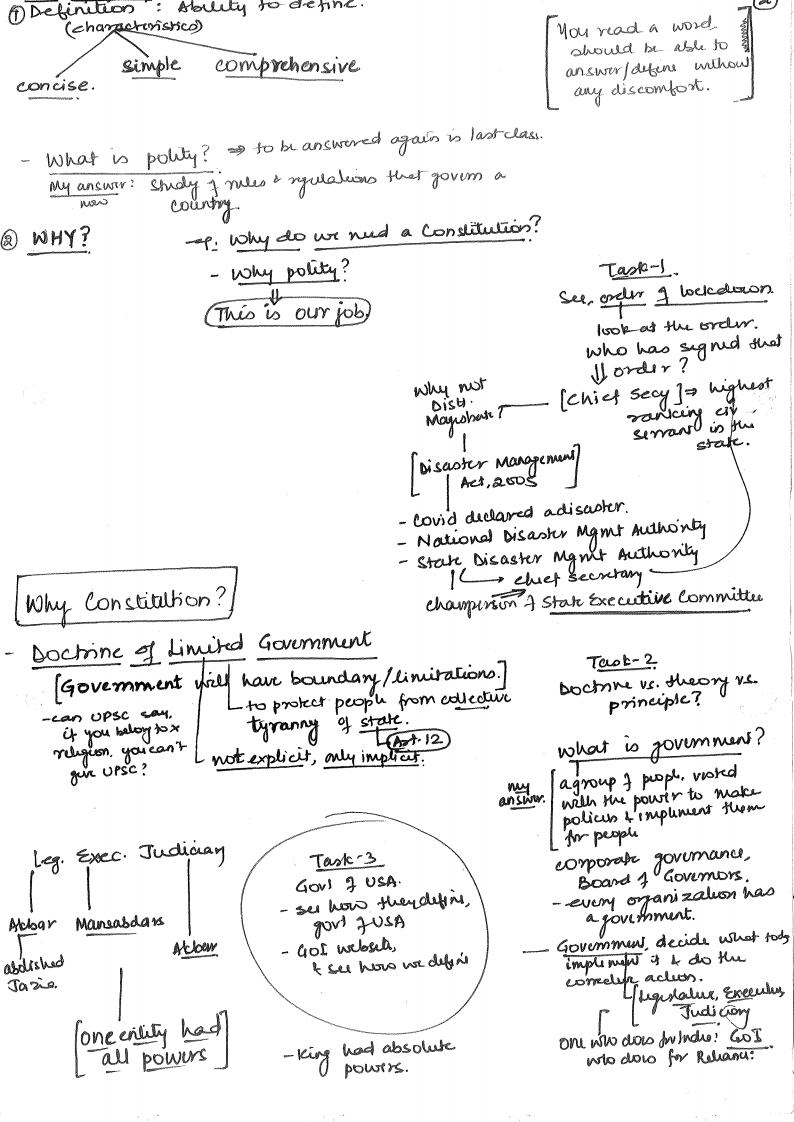 ① Definition : Ability to define.
(characteristics)
concise.
simple
comprehensive
2
[You read a word
should be able to
answer/define without
any discomfort.]
- What is polity? ⇒ to be answered again is last class.
My answer: Study of rules & regulations that govern a
now
country.
② WHY?
Why do we need a Constitution?
- Why polity?
⇓
This is our job.
Task-1.
See, order of lockdown.
look at the order.
Who has signed that
⇓ order?
[Chief Secy] ⇒ highest
ranking civ
servant in the
state.
Why not
Dist.
Magistrate?
[Disaster Management
Act, 2005]
- Covid declared a disaster.
- National Disaster Mgmt Authority
- State Disaster Mgmt Authority
→ chief secretary
chairperson of State Executive Committee
Why Constitution?
- Doctrine of Limited Government
[Government will have boundary/limitations.]
to protect people from collective
tyranny of state.
Art. 12
not explicit, only implicit.
- can UPSC say,
if you belong to x
religion, you can't
give UPSC?
Task-2
Doctrine vs. theory vs.
principle?
what is government?
my
answer.
a group of people, vested
with the power to make
policies & implement them
for people
corporate governance,
Board of Governors.
- every organization has
a government.
- Government, decide what to do,
implement it & do the
correction action.
[Legislature, Executive,
Judiciary
one who does for India: GoI
who does for Reliance:
Leg. Exec. Judiciary
Akbar
Mansabdars
Akbar
abolished
Jazia.
[one entity had
all powers]
Task-3
Govt of USA.
- see how they define,
govt of USA
- GOI website,
& see how we define
- King had absolute
powers.